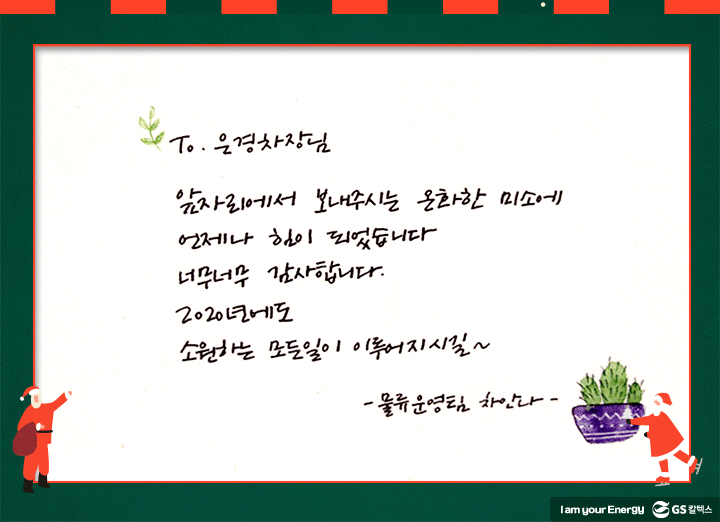 To. 은경차장님
앞자리에서 보내주시는 온화한 미소에
언제나 힘이 되었습니다
너무너무 감사합니다.
2020년에도
소원하는 모든일이 이루어지시길~
- 물류운영팀 차안나 -
I am your Energy GS칼텍스